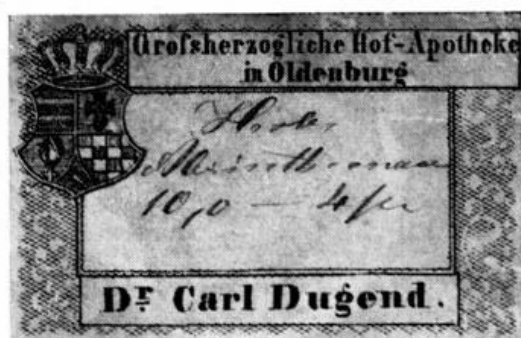 Großherzogliche Hof-Apotheke
in Oldenburg
10,0 — 4
Dr Carl Dugend.